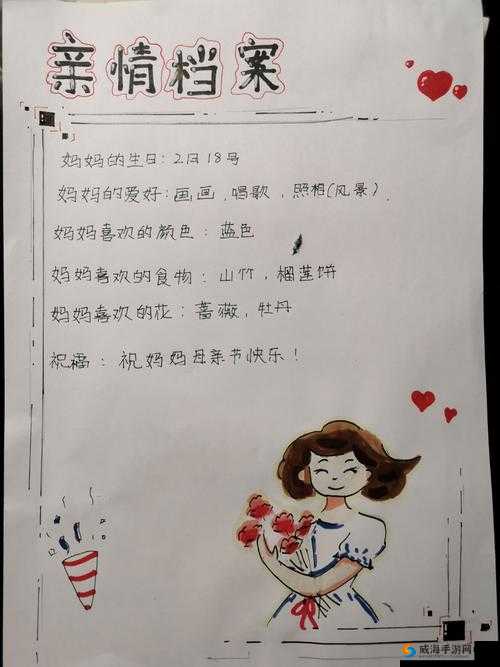 亲情档案
妈妈的生日：2月18号
妈妈的爱好：画画，唱歌，照相（风景）．
妈妈喜欢的颜色：蓝色
妈妈喜欢的食物：山竹，榴莲饼
妈妈喜欢的花：蔷薇，牡丹
祝福：祝妈妈母亲节快乐！
威海手游网